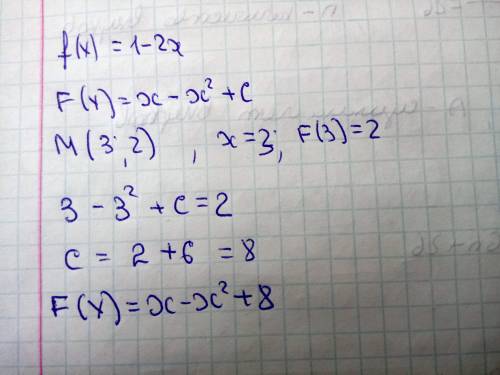 f(x) = 1-2x
F(x) = x - x² + C
M(3;2) , x=3; F(3)=2
3 - 3² + C = 2
C = 2 + 6 = 8
F(x) = x - x² + 8